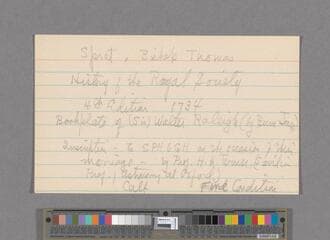 Sprat, Bishop Thomas
History of the Royal Society
4th Edition 1734
Bookplate of (Sir) Walter Raleigh (by Bruce
Inscription - to S.P.H. & G.H. on the occasion of their
marriage - by Prof. H. H. Turner (Savilian
Prof. Astronomy at Oxford)
Calf Fine Condition